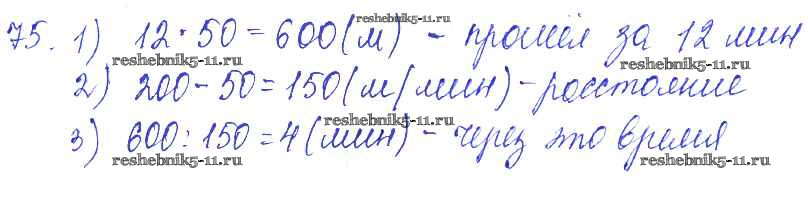 75. 1) 12 · 50 = 600 (м) - прошёл за 12 мин
reshebnik5-11.ru
reshebnik5-11.ru reshebnik5-11.ru
2) 200 - 50 = 150 (м/мин) - расстояние
3) 600 : 150 = 4 (мин) - через это время
reshebnik5-11.ru
reshebnik5-11.ru reshebnik5-11.ru